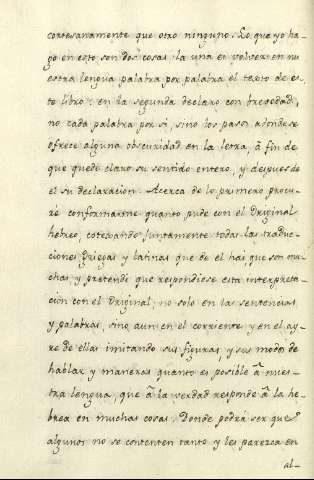 cortesanamente que otro ninguno. Lo que yo ha-
go en esto son dos cosas: la una es volver en nu-
estra lengua palabra por palabra el texto de es-
te libro: en la segunda declaro con brevedad,
no cada palabra por si, sino los pasos adonde se
ofrece alguna obscuridad en la letra, à fin de
que quede claro su sentido entero, y despues de
el su declaracion. Acerca de lo primero procu-
rè conformarme quanto pude con el Original
hebreo, cotexando juntamente todas las traduc-
ciones griegas y latinas que de el hai que son mu-
chas, y pretendi que respondiese esta interpreta-
cion con el Original, no solo en las sentencias
y palabras, sino aun en el corriente y en el ay-
re de ellas imitando sus figuras, y sus modos de
hablar y maneras quanto es posible à nues-
tra lengua, que à la verdad responde à la he-
brea en muchas cosas. Donde podrá ser que
algunos no se contenten tanto y les parezca en
al-